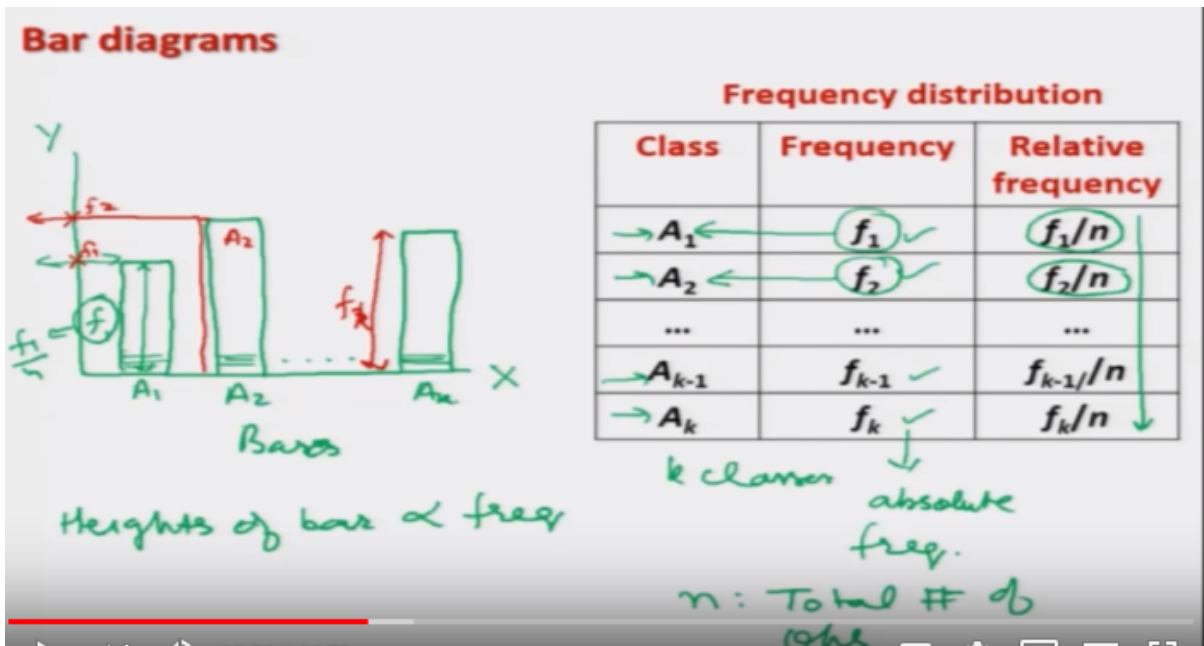 Bar diagrams
Y
f2
f1
A2
f
f1/n
fk
A1
A2
. . . . .
Ak
X
Bars
Heights of bar ∝ freq
Frequency distribution
Class Frequency Relative frequency
A1 f1 f1/n
A2 f2 f2/n
... ... ...
Ak-1 fk-1 fk-1//n
Ak fk fk/n
k classes
absolute
freq.
n: Total # of
obs